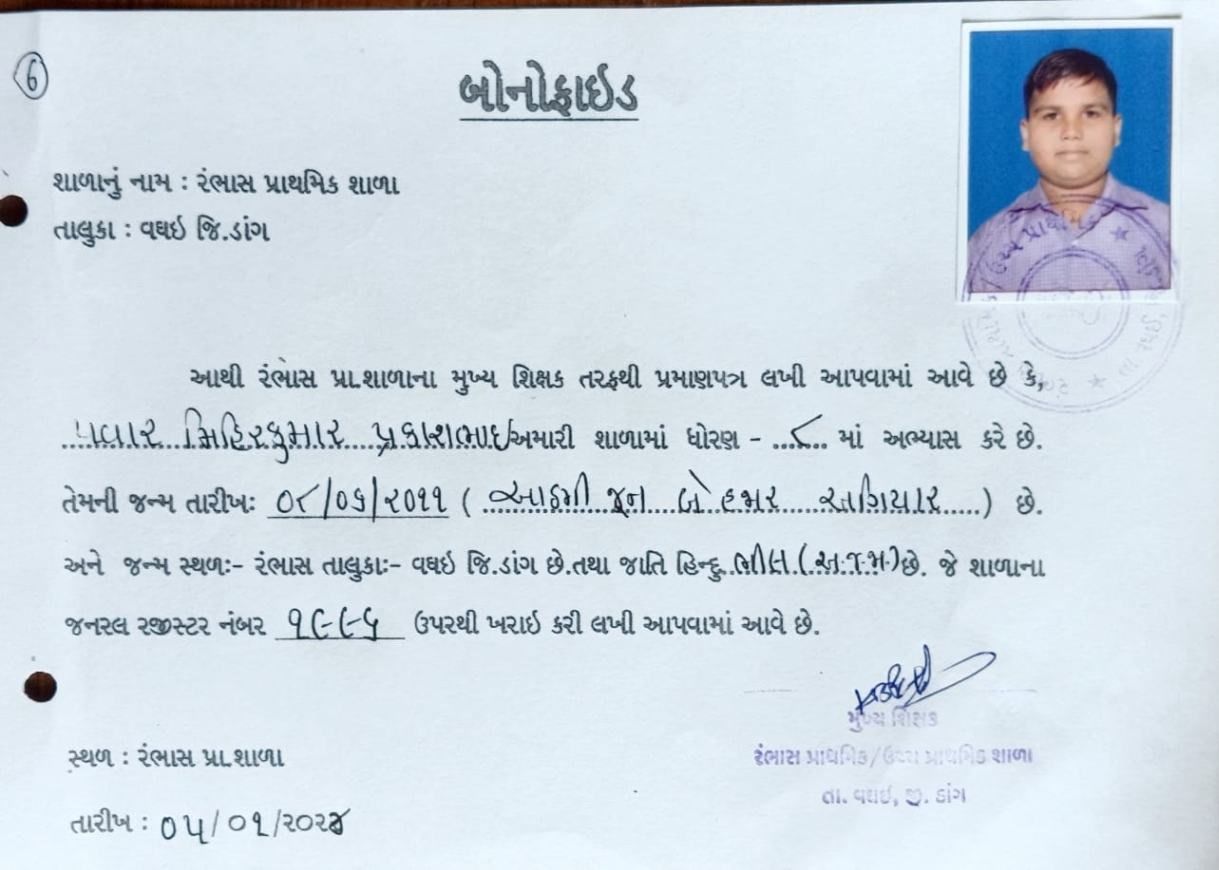 ૬
બોનોફાઇડ
શાળાનું નામ : રંભાસ પ્રાથમિક શાળા
તાલુકા : વઘઇ જિ.ડાંગ
આથી રંભાસ પ્રા.શાળાના મુખ્ય શિક્ષક તરફથી પ્રમાણપત્ર લખી આપવામાં આવે છે કે,
પવાર મિહિરકુમાર પ્રકાશભાઇ અમારી શાળામાં ધોરણ - ...૮... માં અભ્યાસ કરે છે.
તેમની જન્મ તારીખઃ ૦૮/૦૬/૨૦૧૧ ( આઠમી જૂન બે હજાર અગિયાર ) છે.
અને જન્મ સ્થળઃ- રંભાસ તાલુકાઃ- વઘઇ જિ.ડાંગ છે.તથા જાતિ હિન્દુ ભીલ (અ.જ.જા) છે. જે શાળાના
જનરલ રજીસ્ટર નંબર ૧૯૯૬ ઉપરથી ખરાઇ કરી લખી આપવામાં આવે છે.
મુખ્ય શિક્ષક
સ્થળ : રંભાસ પ્રા.શાળા
રંભાસ પ્રાથમિક/ઉચ્ચ પ્રાથમિક શાળા
તા. વઘઇ, જી. ડાંગ
તારીખ : ૦૫/૦૧/૨૦૨૪